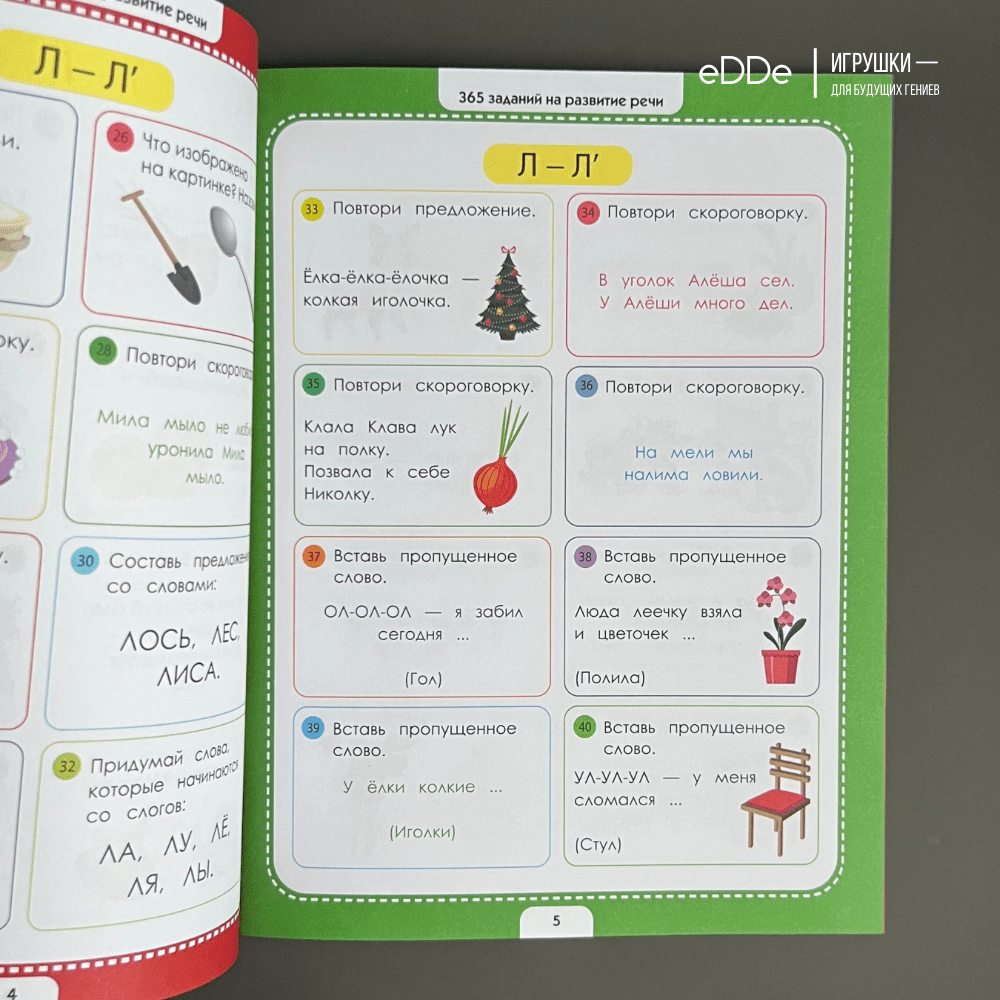 eDDe
ИГРУШКИ —
ДЛЯ БУДУЩИХ ГЕНИЕВ
развитие речи
Л – Л’
26 Что изображено
на картинке?
28 Повтори
Мила мыло не
уронила Мила
мыло.
30 Составь
со словами:
ЛОСЬ, ЛЕС,
ЛИСА.
32 Придумай слова,
которые начинаются
со слогов:
ЛА, ЛУ, ЛЁ,
ЛЯ, ЛЫ.
4
365 заданий на развитие речи
Л – Л’
33 Повтори предложение.
Ёлка-ёлка-ёлочка —
колкая иголочка.
34 Повтори скороговорку.
В уголок Алёша сел.
У Алёши много дел.
35 Повтори скороговорку.
Клала Клава лук
на полку.
Позвала к себе
Николку.
36 Повтори скороговорку.
На мели мы
налима ловили.
37 Вставь пропущенное
слово.
ОЛ-ОЛ-ОЛ — я забил
сегодня ...
(Гол)
38 Вставь пропущенное
слово.
Люда леечку взяла
и цветочек ...
(Полила)
39 Вставь пропущенное
слово.
У ёлки колкие ...
(Иголки)
40 Вставь пропущенное
слово.
УЛ-УЛ-УЛ — у меня
сломался ...
(Стул)
5